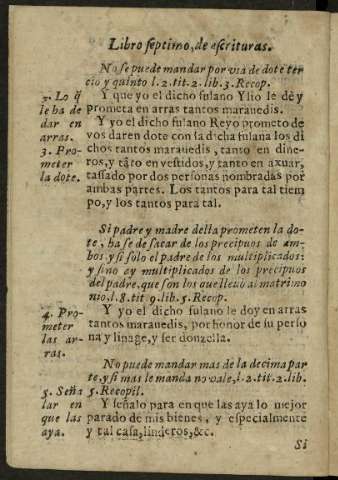 Libro septimo, de escrituras.
No se puede mandar por via de dote ter
cio y quinto l. 2. tit. 2. lib. 3. Recop.
2. Lo q̃
le ha de
dar en
arras.
Y que yo el dicho fulano Ylio le dè y
prometa en arras tantos marauedis.
Y yo el dicho fulano Reyo prometo de
vos daren dote con la dicha fulana los di
chos tantos marauedis, tanto en dine-
ros, y tãto en vestidos, y tanto en axuar,
tassado por dos personas nombradas por
ambas partes. Los tantos para tal tiem
po, y los tantos para tal.
3. Pro-
meter
la dote.
Si padre y madre della prometen la do-
te, ha se de sacar de los precipuos de am-
bos, y si sólo el padre de los multiplicados:
y si no ay multiplicados de los precipuos
del padre, que son los que lleuò al matrimo
nio, l. 8. tit 9. lib. 5. Recop.
4. Pro-
meter
las ar-
ras.
Y yo el dicho fulano le doy en arras
tantos marauedis, por honor de su perso
na y linage, y ser donzella.
No puede mandar mas de la decima par
te, y si mas le manda no vale, l. 2. tit. 2. lib.
5. Recopil.
5. Seña
lar en
que las
aya.
Y señalo para en que las aya lo mejor
parado de mis bienes, y especialmente
y tal casa, linderos, &c.
Si